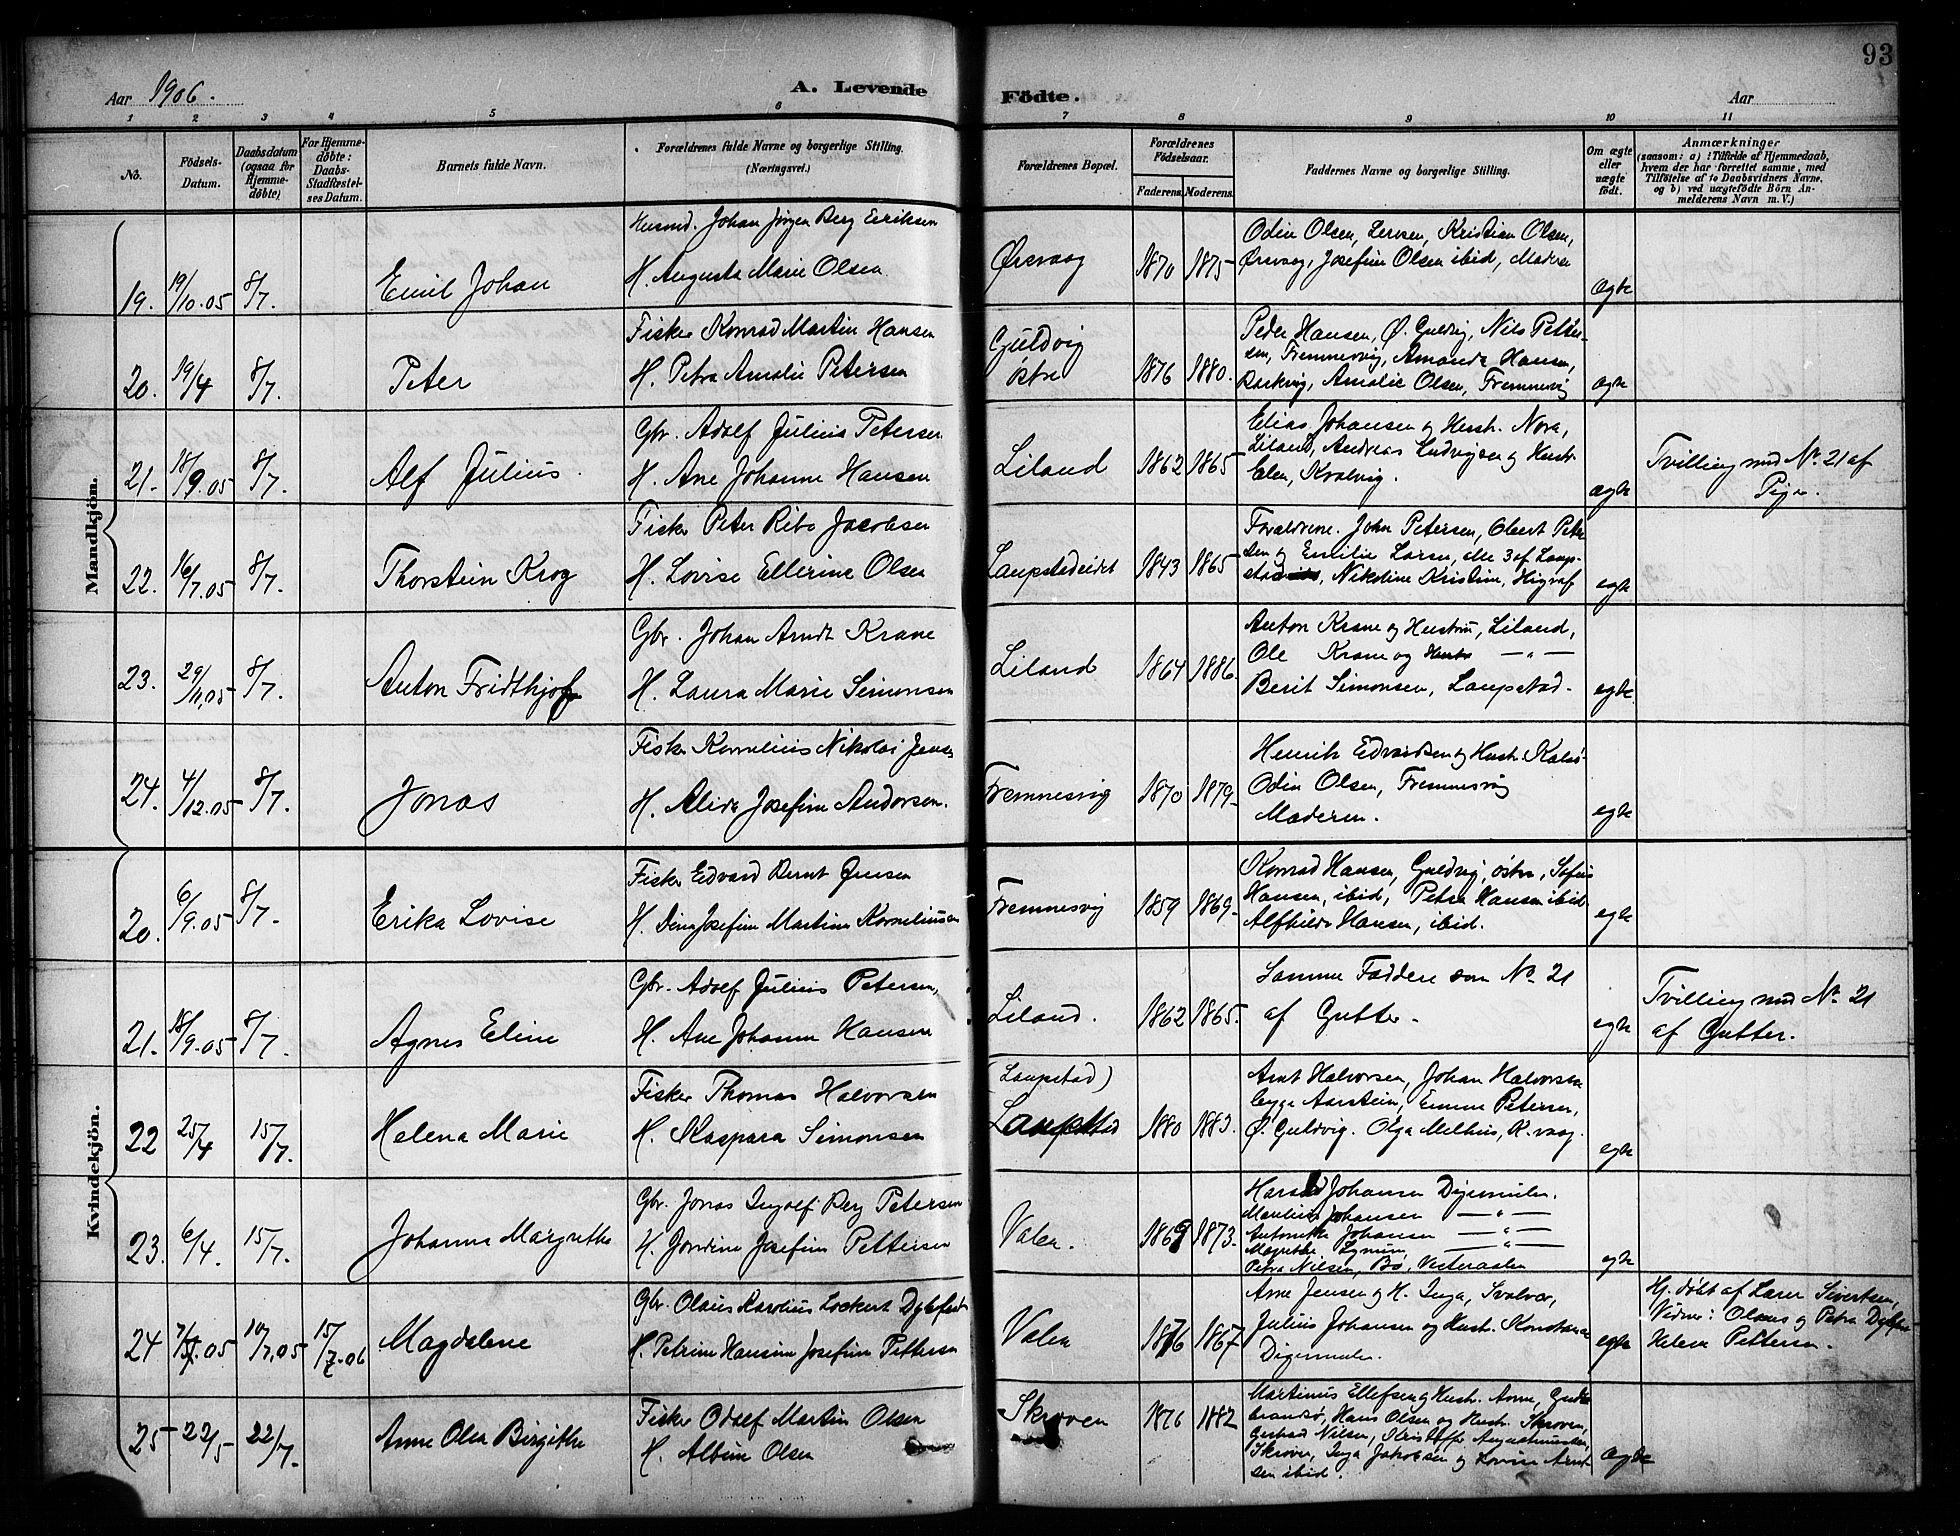 93
Aar 1906.
A. Levende Födte.
Aar
1 2 3 4 5 6 7 8 9 10 11
No.
Födsels-Datum.
Daabsdatum (ogsaa for Hjemme-döbte)
For Hjemme-döbte: Daabs-Stadfæstel-ses Datum.
Barnets fulde Navn.
Forældrenes fulde Navne og borgerlige Stilling. (Næringsvei.)
Forældrenes Bopæl.
Forældrenes Födselsaar.
Faderens. Moderens.
Faddernes Navne og borgerlige Stilling.
Om ægte eller uægte födt.
Anmærkninger
(saasom: a) i Tilfælde af Hjemmedaab, hvem der har forrettet samme, med Tilföielse af to Daabsvidners Navne, og b) ved uægtefödte Börn An-melderens Navn m. V.)
Mandkjön.
19. 19/10.05 8/7. Emil Johan
Husmd. Johan Jörgen Berg Eriksen
H. Augusta Marie Olsen
Ørsvaag 1870 1875
Odin Olsen, Kristian Olsen,
Ørsvaag, Josefine Olsen ibid, Moderen
ægte
20. 19/4 8/7. Peter
Fisker Konrad Martin Hansen
H. Petra Amalie Petersen
Guldvig
østre 1876 1880.
Peder Hansen, Ø. Guldvig, Nils Petter-
sen, Fremnesvig, Amanda Hansen,
Amalie Olsen, Fremnesvig
ægte
21. 18/9.05 8/7. Alf Julius.
Gbr. Adolf Julius Petersen
H. Ane Johanne Hansen
Liland 1862 1865
Elias Johansen og Hustr. Nora,
Liland, Andreas Ludvigsen og Hustr.
Elen, Kvalvig.
ægte
Tvilling med No. 21 af
Piger.
22. 16/7.05 8/7. Thorstein Krog
Fisker Peter Ribo Jacobsen
H. Lovise Ellerine Olsen
Laupstadeidet 1843 1865
Forældrene. John Petersen, Obert Peter
sen og Emilie Larsen, alle 3 af Laup-
stad, Nikoline Kristine, Higraf
egte
23. 29/11.05 8/7. Anton Fridthjof
Gbr. Johan Arndt Krane
H. Laura Marie Simonsen
Liland 1864 1886.
Anton Krane og Hustru, Liland,
Ole Krane og Hustr — " —
Berit Simonsen, Laupstad.
egte
24. 4/12.05 8/7. Jonas
Fisker Kornelius Nikolai Jensen
H. Alida Josefine Andorsen.
Fremnesvig 1870 1879
Henrik Edvardsen og Hustr.
Odin Olsen, Fremnesvig
Moderen.
egte
Kvindekjön.
20. 6/9.05 8/7. Erika Lovise
Fisker Edvard Bernt Jensen
H. Dina Josefine Martine Korneliussen
Fremnesvig 1859 1869
Konrad Hansen, Guldvig, østre, Sofus
Hansen, ibid, Petra Hansen ibid
Alfhilde Hansen, ibid.
egte
21. 18/9.05 8/7. Agnes Eline
Gbr. Adolf Julius Petersen,
H. Ane Johanne Hansen
Liland. 1862 1865.
Samme Faddere som No. 21
af Gutter.
egte
Tvilling med No. 21
af Gutter.
22 25/4 15/7. Helena Marie
Fisker Thomas Halvorsen
H. Kaspara Simonsen
(Laupstad)
Laupstad 1880 1883.
Arnt Halvorsen, Johan Halvorsen
Aarstein, Emma Petersen,
Ø. Guldvig. Olga Melhus, K.vaag.
egte
23. 6/4. 15/7. Johanna Margrethe
Gbr. Jonas Ingolf Berg Petersen
H. Jordine Josefine Pettersen
Valen. 1869 1873.
Harald Johansen Digermulen.
Maulius Johansen — " —
Antonette Johansen — " —
Magrethe — " —
Petra Nielsen, Bø, Vesteraalen
egte
24 7/5.05 10/7.05 15/7.06 Magdalene
Gbr. Olaus Karolius Lockert Dybfest
H. Petrine Hansine Josefine Pettersen
Valen 1876 1867
Arne Jensen og H. Inga, Svolvær,
Julius Johansen og Hustr. Konstanse
Digermulen.
egte
Hj. døbt af Lærer Sivertsen,
Vidner: Olaus og Petra Dybfest
Helena Pettersen.
25 22/5 22/7. Anne Olea Birgithe
Fisker Odolf Martin Olsen
H. Albine Olsen
Skroven 1876 1882
Martinus Ellefsen og Hustr. Anne, Guld
brandsø, Hans Olsen og Hustr. Skroven,
Gerhard Nilsen, Kristoffer Augustinussen,
Skroven, Inga Jakobsen og Lovise Arnt
sen ibid.
ægte